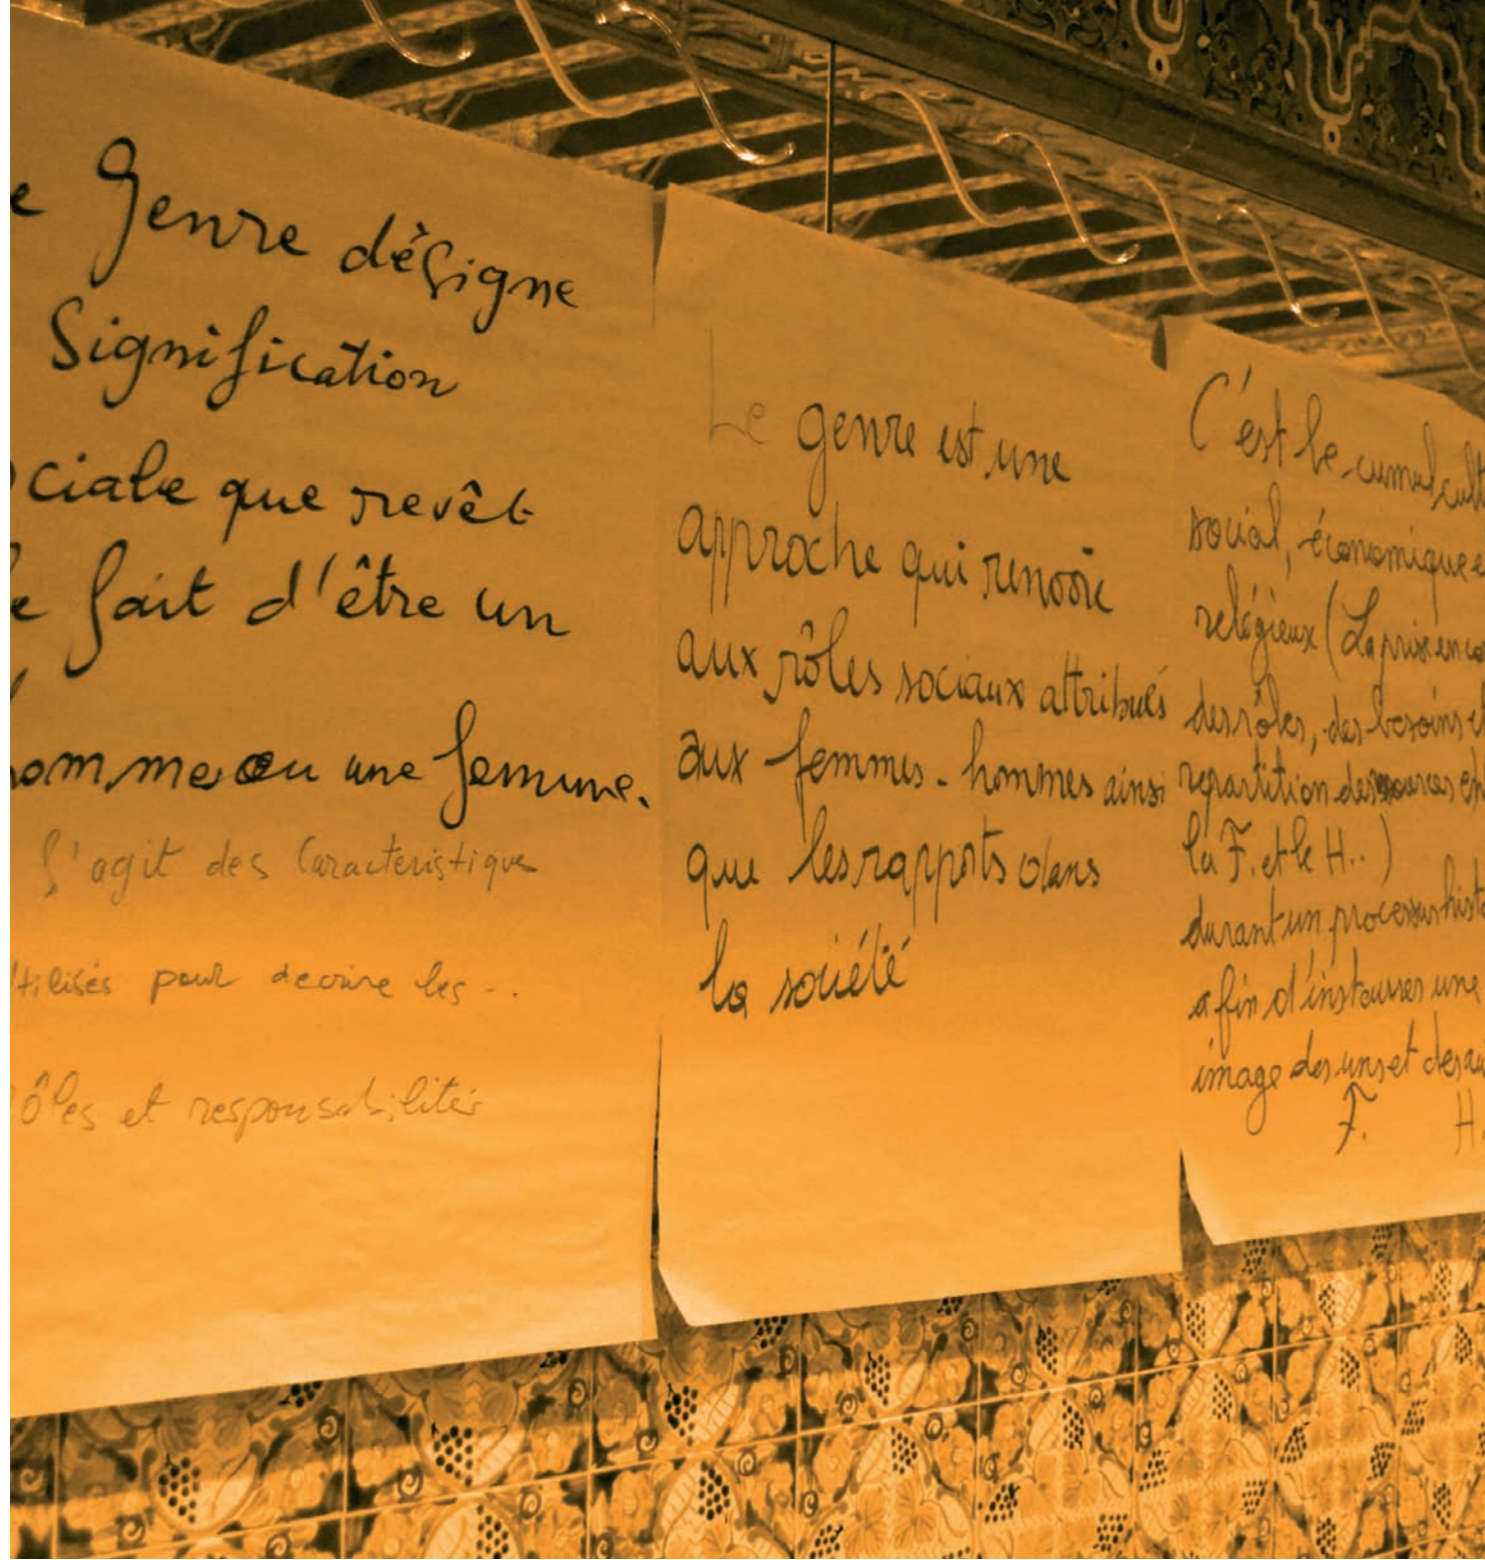 e Genre désigne
Signification
ociale que revêt
e fait d'être un
homme ou une femme.
s'agit des Caracteristique
utilisés pour decrire les ..
rôles et responsabilités
Le genre est une
approche qui renvoie
aux rôles sociaux attribués
aux femmes - hommes ainsi
que les rapports dans
la société
C'est le cumul cult
social, économique e
religieux (La prise en co
des rôles, des besoins et
repartition des ressources en
la F. et le H..)
durant un processus histo
afin d'instaurer une
image des uns et des au
F. H.